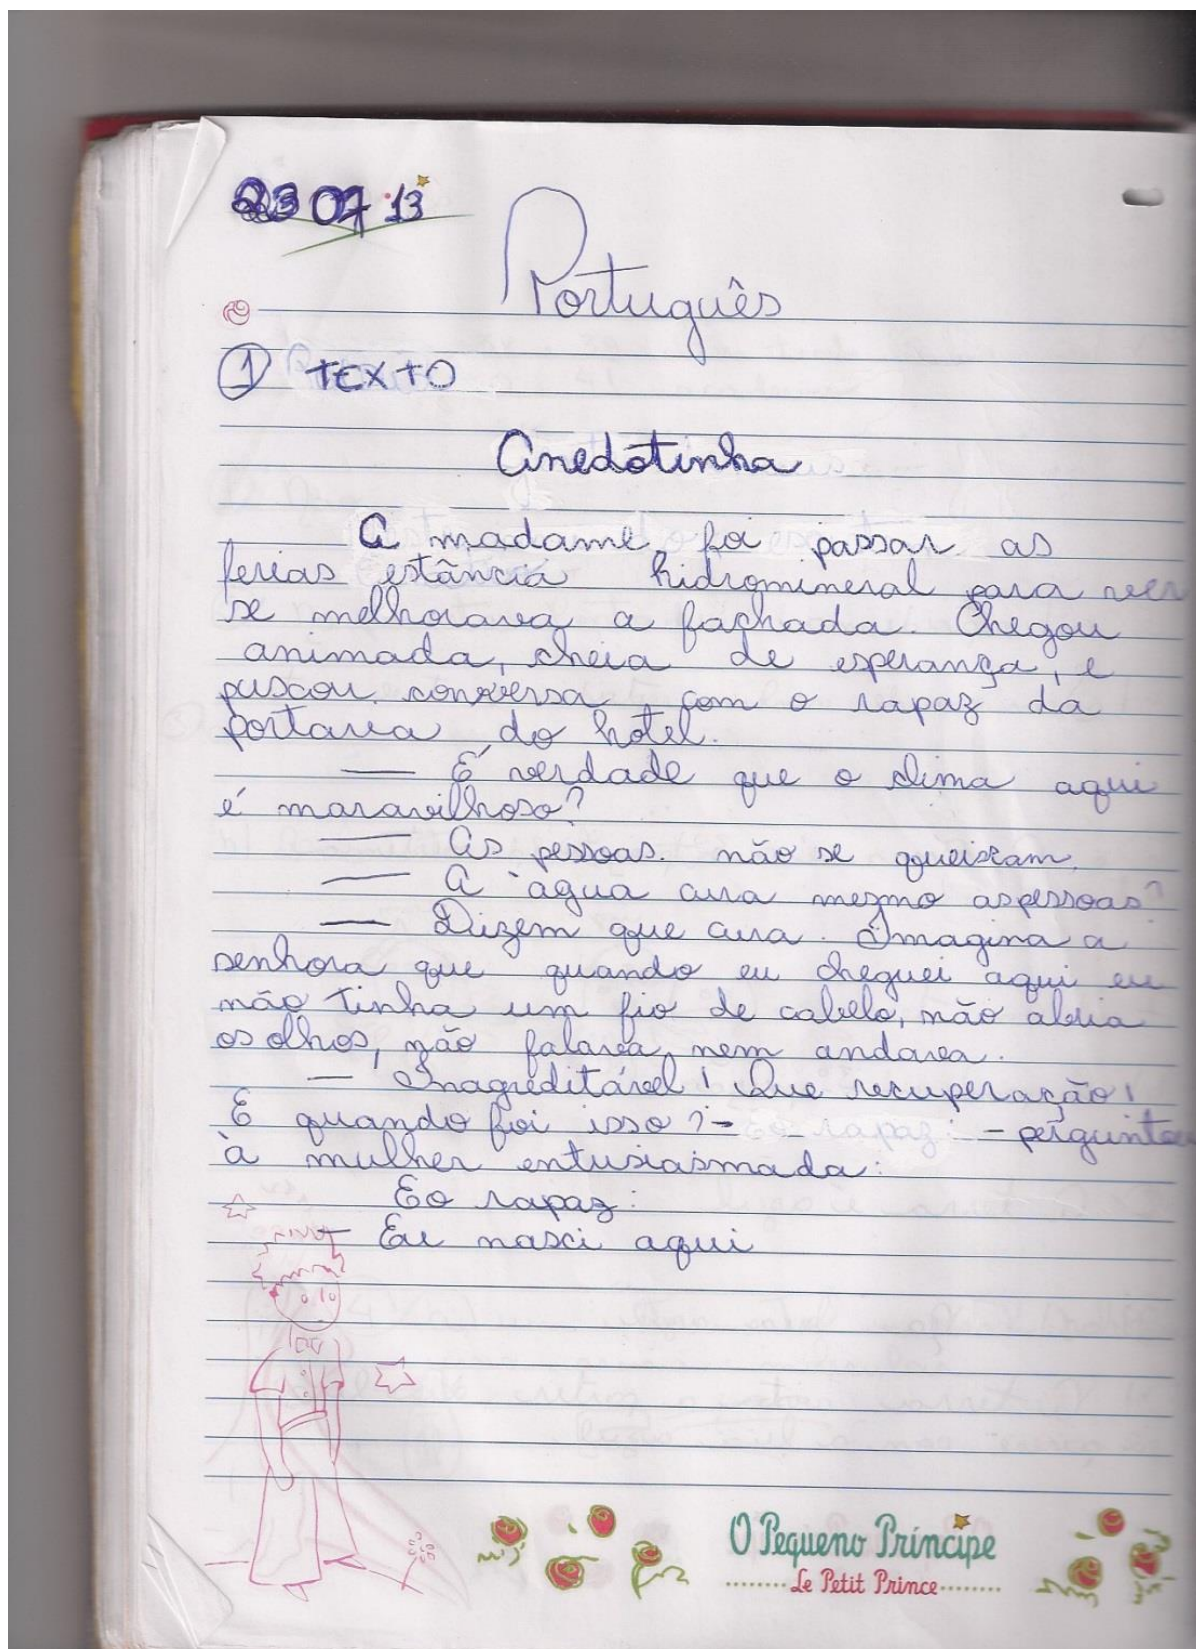 23 07 13
Português
1 TEXTO
Anedotinha
A madame, foi passar as
ferias estância hidromineral para ver
se melhorava a fachada. Chegou
animada, cheia de esperança, e
puscou conversa com o rapaz da
portaria do hotel.
— É verdade que o clima aqui
é maravilhoso?
— As pessoas. não se queixam.
— A àgua cura mesmo aspessoas?
— Dizem que cura. Imagina a
senhora que quando eu cheguei aqui eu
não tinha um fio de cabelo, não abria
os olhos, não falava, nem andava.
— Inagreditável! Que recuperação!
E quando foi isso? - Eo rapaz: - perguntou
à mulher entusiasmada:
Eo rapaz:
— Eu nasci aqui
O Pequeno Príncipe
Le Petit Prince